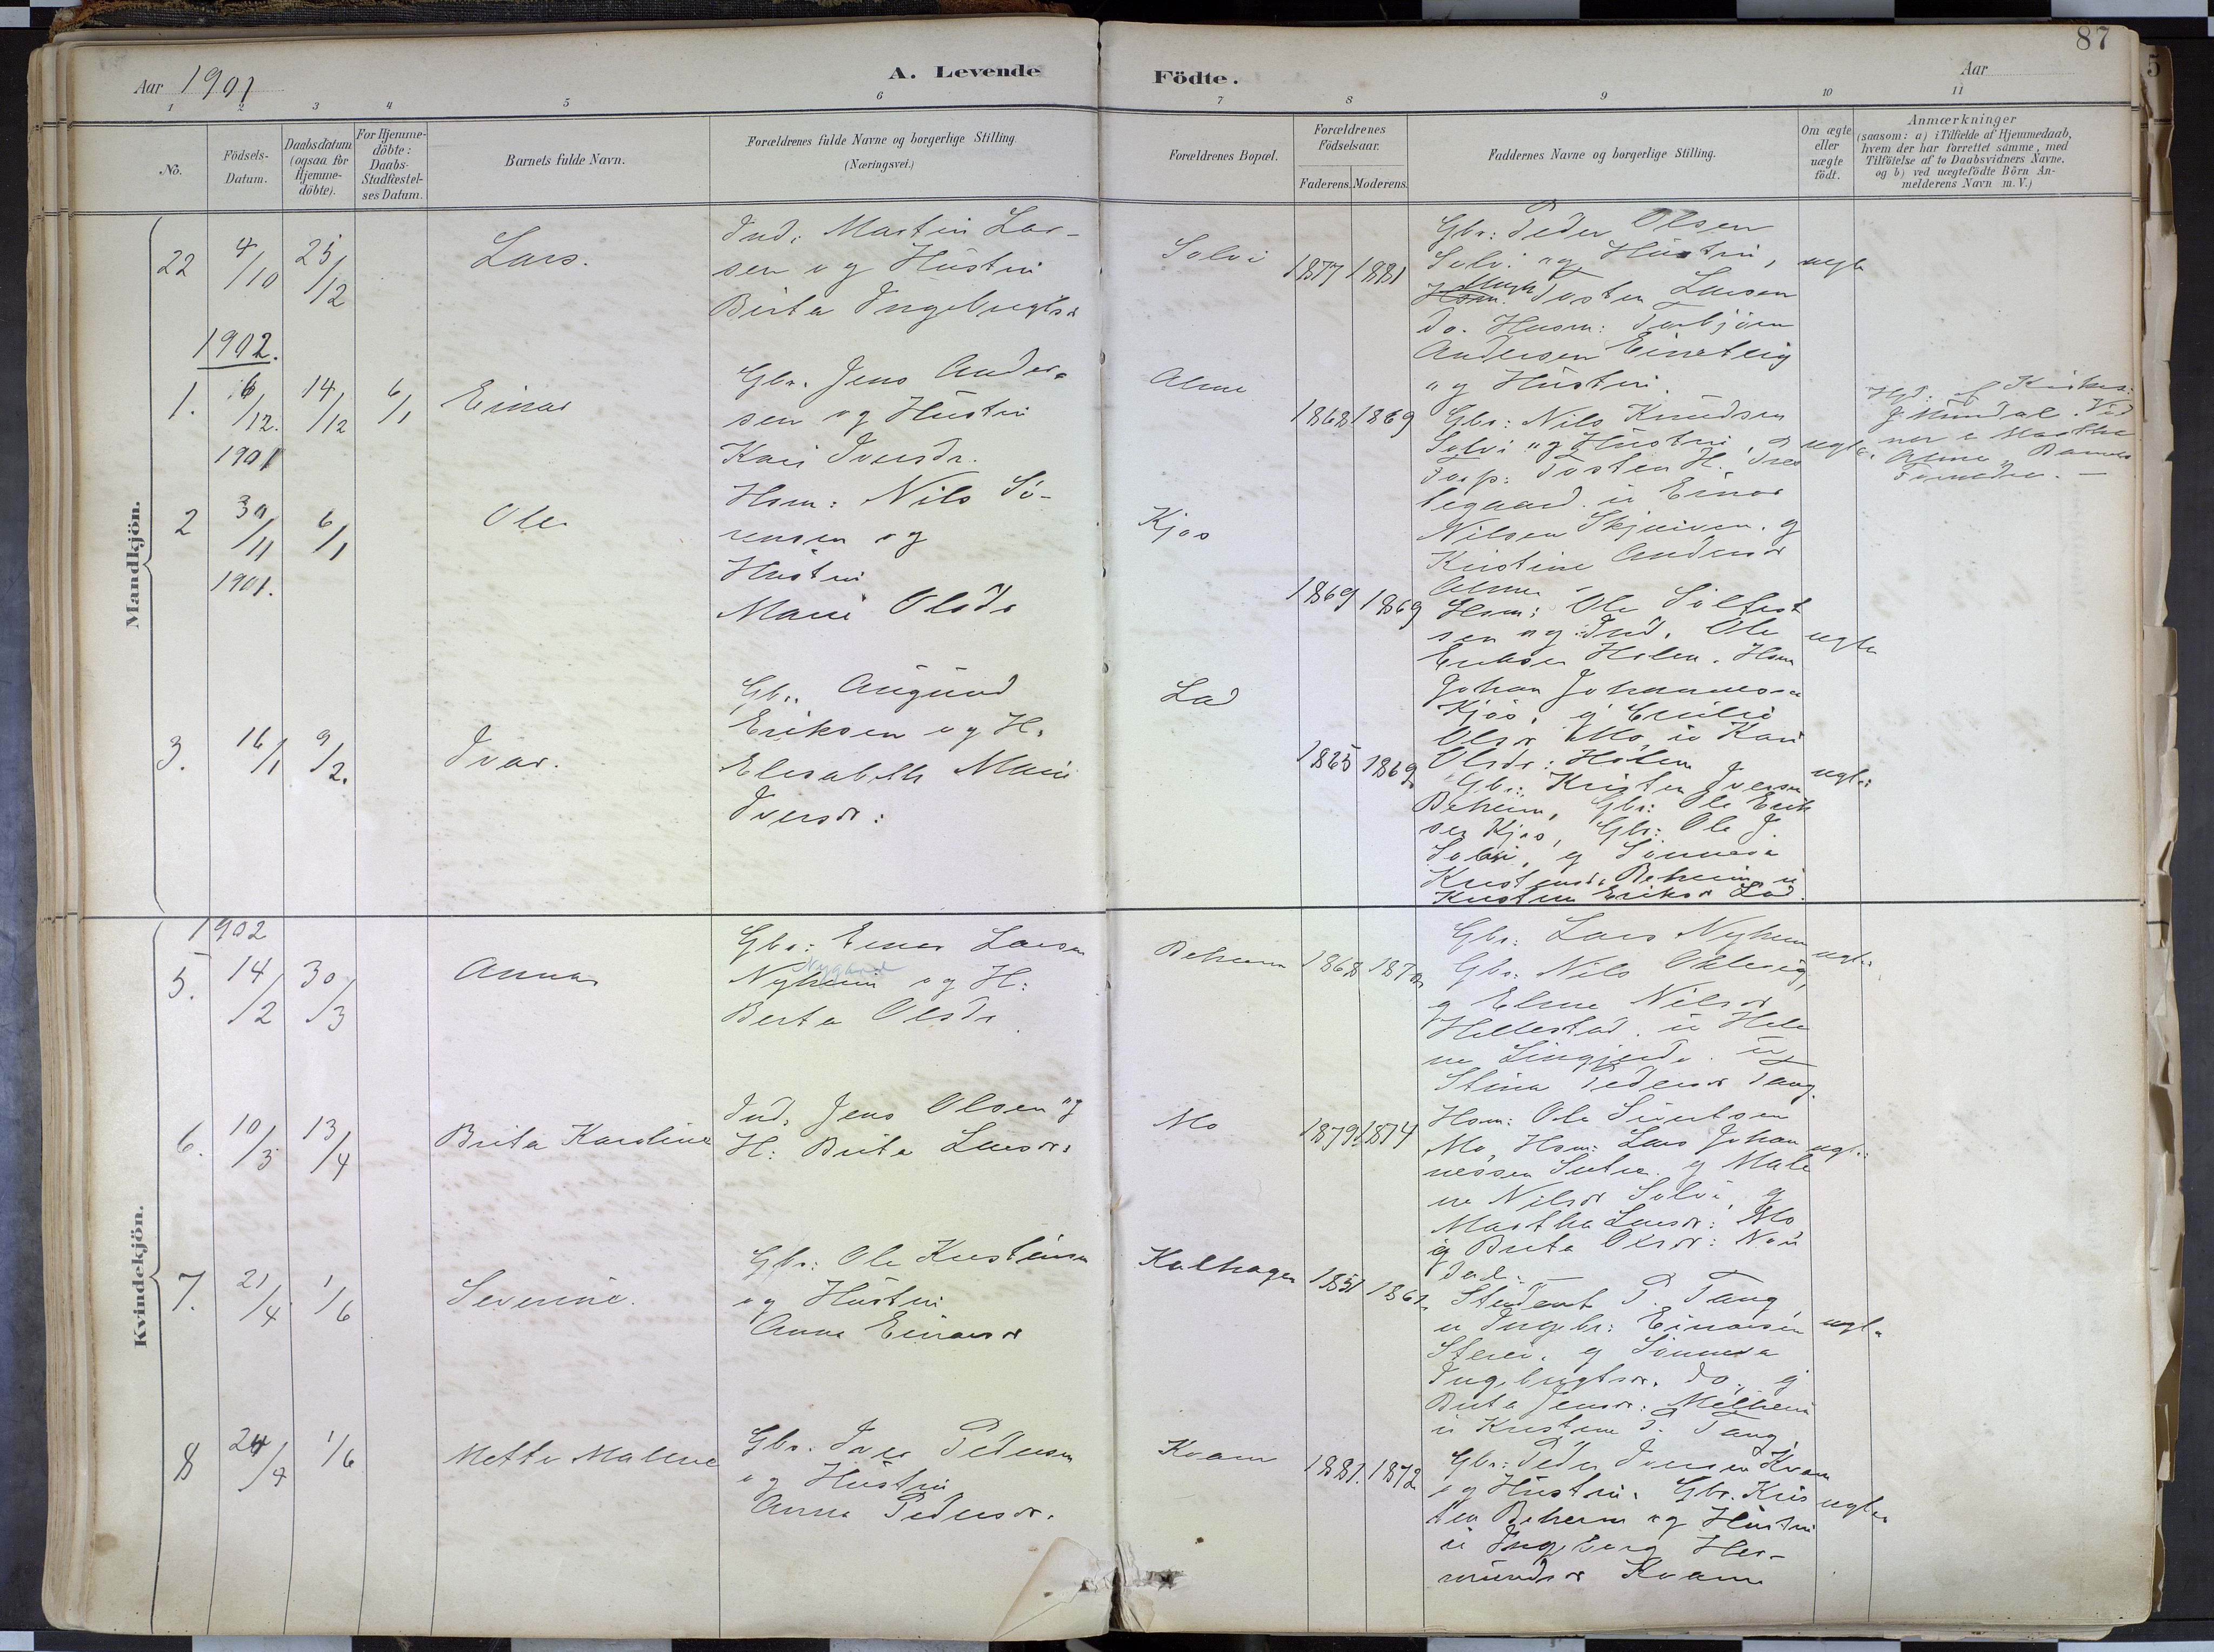 87
Aar 1901
A. Levende Födte.
Aar
1 2 3 4 5 6 7 8 9 10 11
No.
Födsels-Datum.
Daabsdatum (ogsaa for Hjemme-döbte).
For Hjemme-döbte: Daabs-Stadfæstel-ses Datum.
Barnets fulde Navn.
Forældrenes fulde Navne og borgerlige Stilling
(Næringsvei.)
Forældrenes Bopæl.
Forældrenes Födselsaar.
Faderens. Moderens.
Faddernes Navne og borgerlige Stilling.
Om ægte eller uægte födt.
Anmærkninger
(saasom: a) i Tilfælde af Hjemmedaab,
hvem der har forrettet samme, med
Tilföielse af to Daabsvidners Navne,
og b) ved uægtefödte Börn An-
melderens Navn m. V.)
Mandkjön.
22 4/10 25/12
Lars.
Ind: Martin Lar-
sen og Hustru
Birta Ingebrigtsd
Solvi
1877 1881
Gbr: Peder Olsen
Solvi og Hustru,
Tosten Larsen
do. Husm: Torbjörn
Andersen
og Hustru.
ægte
1902.
1. 6/12. 14/12 6/1
1901
Einar
Gbr. Jens Ander-
sen og Hustru
Kari Iversdr.
Alme
1868 1869
Gbr: Nils Knudsen
Solvi og Hustru,
Tosten H.
Einar
Nilsen
Kristine Andersdr
Alme
ægte.
2 30/11 6/1
1901.
Ole
Hsm: Nils Sö-
rensen og
Hustru
Mari Olsdr
Kjos
1869 1869
Hsm: Ole
sen og Ind. Ole
Eriksen Holen. Hsm
Johan Johannessen
Kjos,
Olsdr Mo, u Kari
Olsdr: Holen
ægte
3. 16/1 9/2.
Ivar.
Gbr. Augund
Eriksen og H.
Elisabeth Marie
Iversdr:
Lad
1865 1869
Gbr: Kristen Iversen
Beheim, Gbr: Ole Erik
sen Kjos, Gbr: Ole J.
Solvi, og Sönneva
Kristensdr Beheim u
Kristine Eriksdr Lad.
ægte:
Kvindekjön.
1902
5. 14/2 30/3
Anna
Gbr: Einar Larsen
Nygaard
Nyheim og H:
Berta Olsdr
Beheim
1868 1870
Gbr: Lars Nyheim
Gbr: Nils
g Eline Nilsdr
Hillestad. u Hele
ne
Stina Pedersdr Tang.
ægte:
6. 10/3 13/4
Brita Karoline
Ind. Jens Olsen og
H: Brita Larsdr:
Mo
1879 1874
Hsm: Ole Sivertsen
Mo, Hsm: Lars Johan
nessen g Male
ne Nilsdr Solvi, g
Martha Larsdr: Mo
g Brita Olsdr: Nou
dal.
ægt:
7. 21/4 1/6
Severine.
Gbr: Ole Kristensen
og Hustru
Anna Einarsdr
Kalhagen
1851 1861
Student P. Tang,
u Ingebr: Einarsen
g Sönneva
Ingebrigtsdr. do, g
Brita Jensdr: Melheim
u Kristine P. Tang.
ægt.
8 24/4 1/6
Mette Malene
Gbr. Iver Pedersen
og Hustru
Anna Pedersdr.
Kvam
1881. 1872
Gbr: Peder Iversen Kvam
og Hustru. Gbr. Kris
ten Beheim og Hustru
u Ingeborg Her-
mundsdr Kvam
ægte